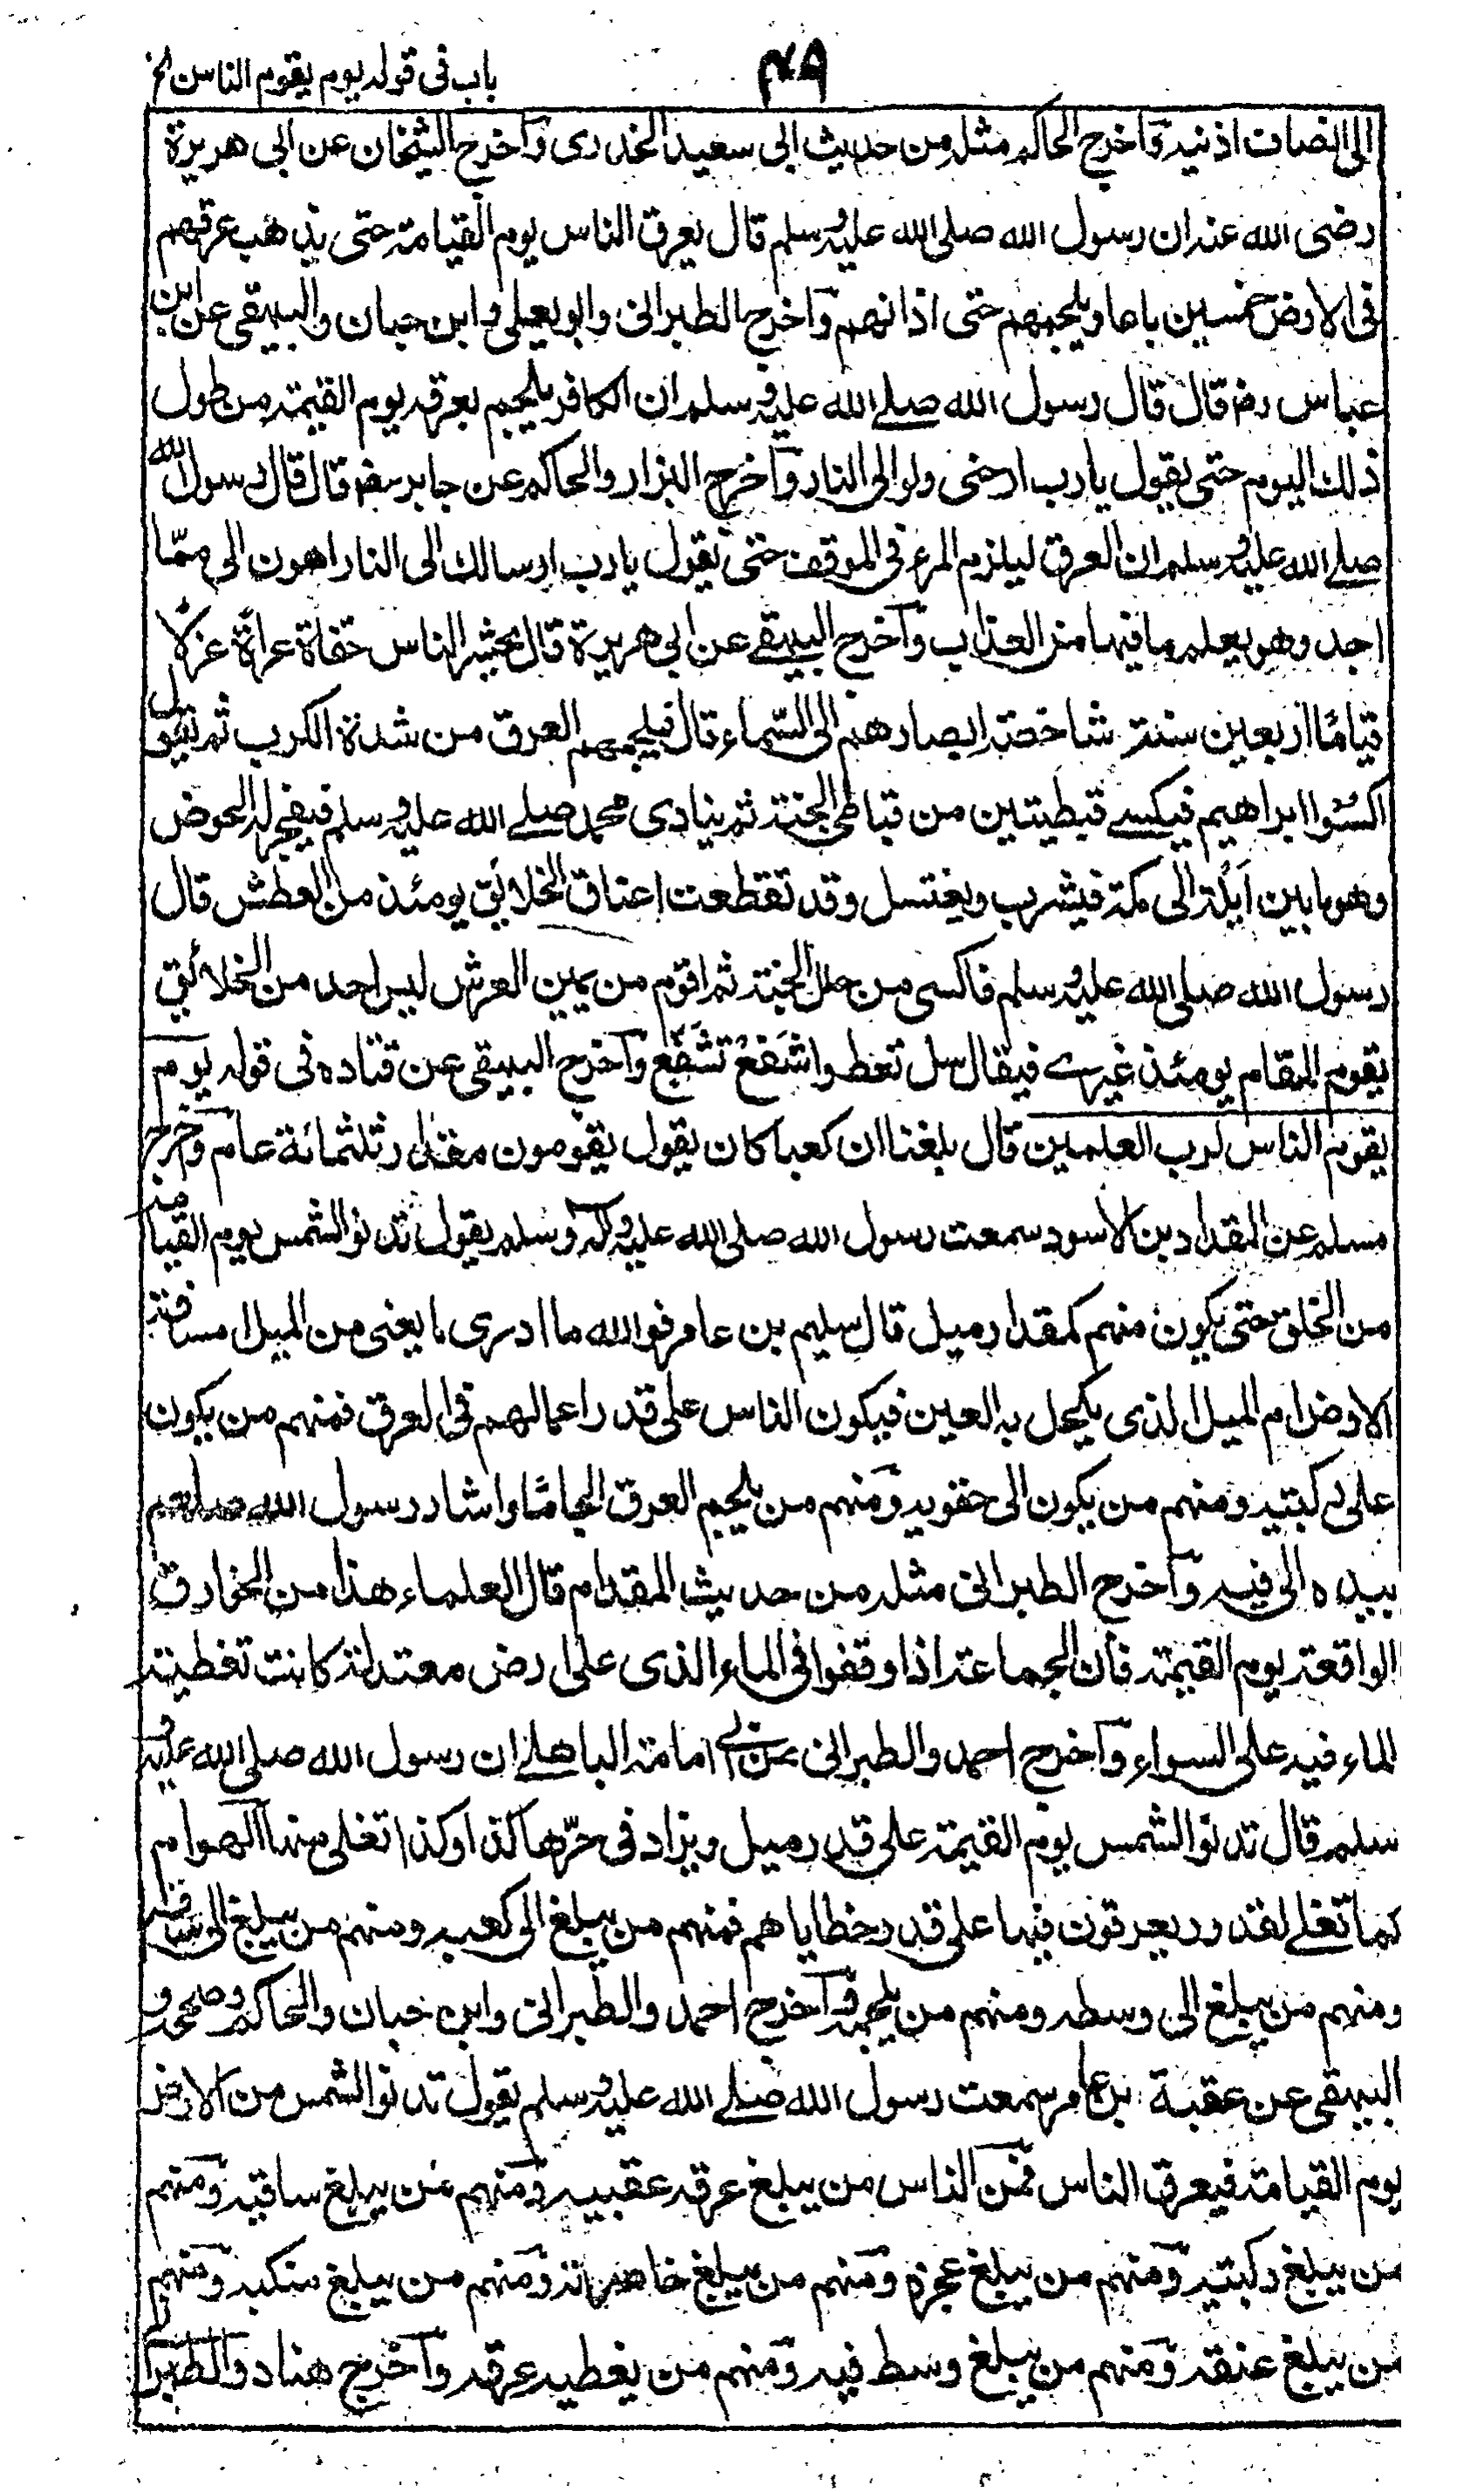 ٤٨
باب فى قوله يوم يقوم الناس الخ
الى انصاف اذنيه وآخرج الحاكم مثله من حديث ابى سعيد الخدرى وآخرج الشيخان عن ابى هريرة
رضى الله عنه ان رسول الله صلى الله عليه وسلم قال يعرق الناس يوم القيامة حتى يذهب عرقهم
فى الارض خمسين باعا ويلجمهم حتى اذانهم وآخرج الطبرانى وابو يعلى وابن حبان والبيهقى عن ابن
عباس رض قال قال رسول الله صلى الله عليه وسلم ان الكافر يلجم بعرقه يوم القيمة من طول
ذلك اليوم حتى يقول يا رب ارحنى ولو الى النار وآخرج البزار والحاكم عن جابر رض قال قال رسول الله
صلى الله عليه وسلم ان العرق ليلزم المرء فى الموقف حتى يقول يا رب ارسالك الى النار اهون الى ممّا
اجد وهو يعلم ما فيها من العذاب وآخرج البيهقى عن ابى هريرة قال يحشر الناس حفاة عراة غزلًا
قيامًا اربعين سنة شاخصة ابصارهم الى السّماء قال فيلجمهم العرق من شدة الكرب ثم يقول
اكسُوا ابراهيم فيكسى قبطيتين من قباطى الجنة ثم ينادى محمد صلى الله عليه وسلم فيفجر له الحوض
وهو ما بين اَيلة الى مكة فيشرب ويغتسل وقد تقطعت اعناق الخلائق يومئذ من العطش قال
رسول الله صلى الله عليه وسلم فاكسى من حلل الجنة ثم اقوم من يمين العرش ليس احد من الخلائق
يقوم المقام يومئذ غيرى فيقال سل تعط واشفعْ تشَفّع وآخرج البيهقى عن قتاده فى قوله يوم
يقوم الناس لرب العلمين قال بلغنا ان كعبا كان يقول يقومون مقدار ثلثمائة عام وآخرج
مسلم عن المقداد بن الاسود سمعت رسول الله صلى الله عليه وآله وسلم يقول تدنو الشمس يوم القيامة
من الخلق حتى يكون منهم كمقدار ميل قال سليم بن عامر فوالله ما ادرى ما يعنى من الميل امسافة
الارض ام الميل الذى يكحل به العين فيكون الناس على قدر اعمالهم فى العرق فمنهم من يكون
على ركبتيه ومنهم من يكون الى حقويه ومنهم من يلجم العرق الجامًا واشار رسول الله صلعم
بيده الى فيه وآخرج الطبرانى مثله من حديث المقدام قال العلماء هذا من الخوارق
الواقعة يوم القيمة فان الجماعة اذا وقفوا فى الماء الذى على ارض معتدلة كانت تغطية
الماء فيه على السواء وآخرج احمد والطبرانى عن ابى امامة الباهلى ان رسول الله صلى الله عليه و
سلم قال تدنو الشمس يوم القيمة على قدر ميل ويزاد فى حرّها كذا وكذا تغلى منها الهوام
كما تغلى القدور يعرقون فيها على قدر خطاياهم فمنهم من يبلغ الى كعبيه ومنهم من يبلغ الى ساقيه
ومنهم من يبلغ الى وسطه ومنهم من يلجمه وآخرج احمد والطبرانى وابن حبان والحاكم وصححه و
البيهقى عن عقبة بن عامر سمعت رسول الله صلى الله عليه وسلم يقول تدنو الشمس من الارض
يوم القيامة فيعرق الناس فمن الناس من يبلغ عرقه عقبيه ومنهم من يبلغ ساقيه ومنهم
من يبلغ ركبتيه ومنهم من يبلغ عجزه ومنهم من يبلغ خاصرته ومنهم من يبلغ منكبه ومنهم
من يبلغ عنقه ومنهم من يبلغ وسط فيه ومنهم من يغطيه عرقه وآخرج هناد والطبرا